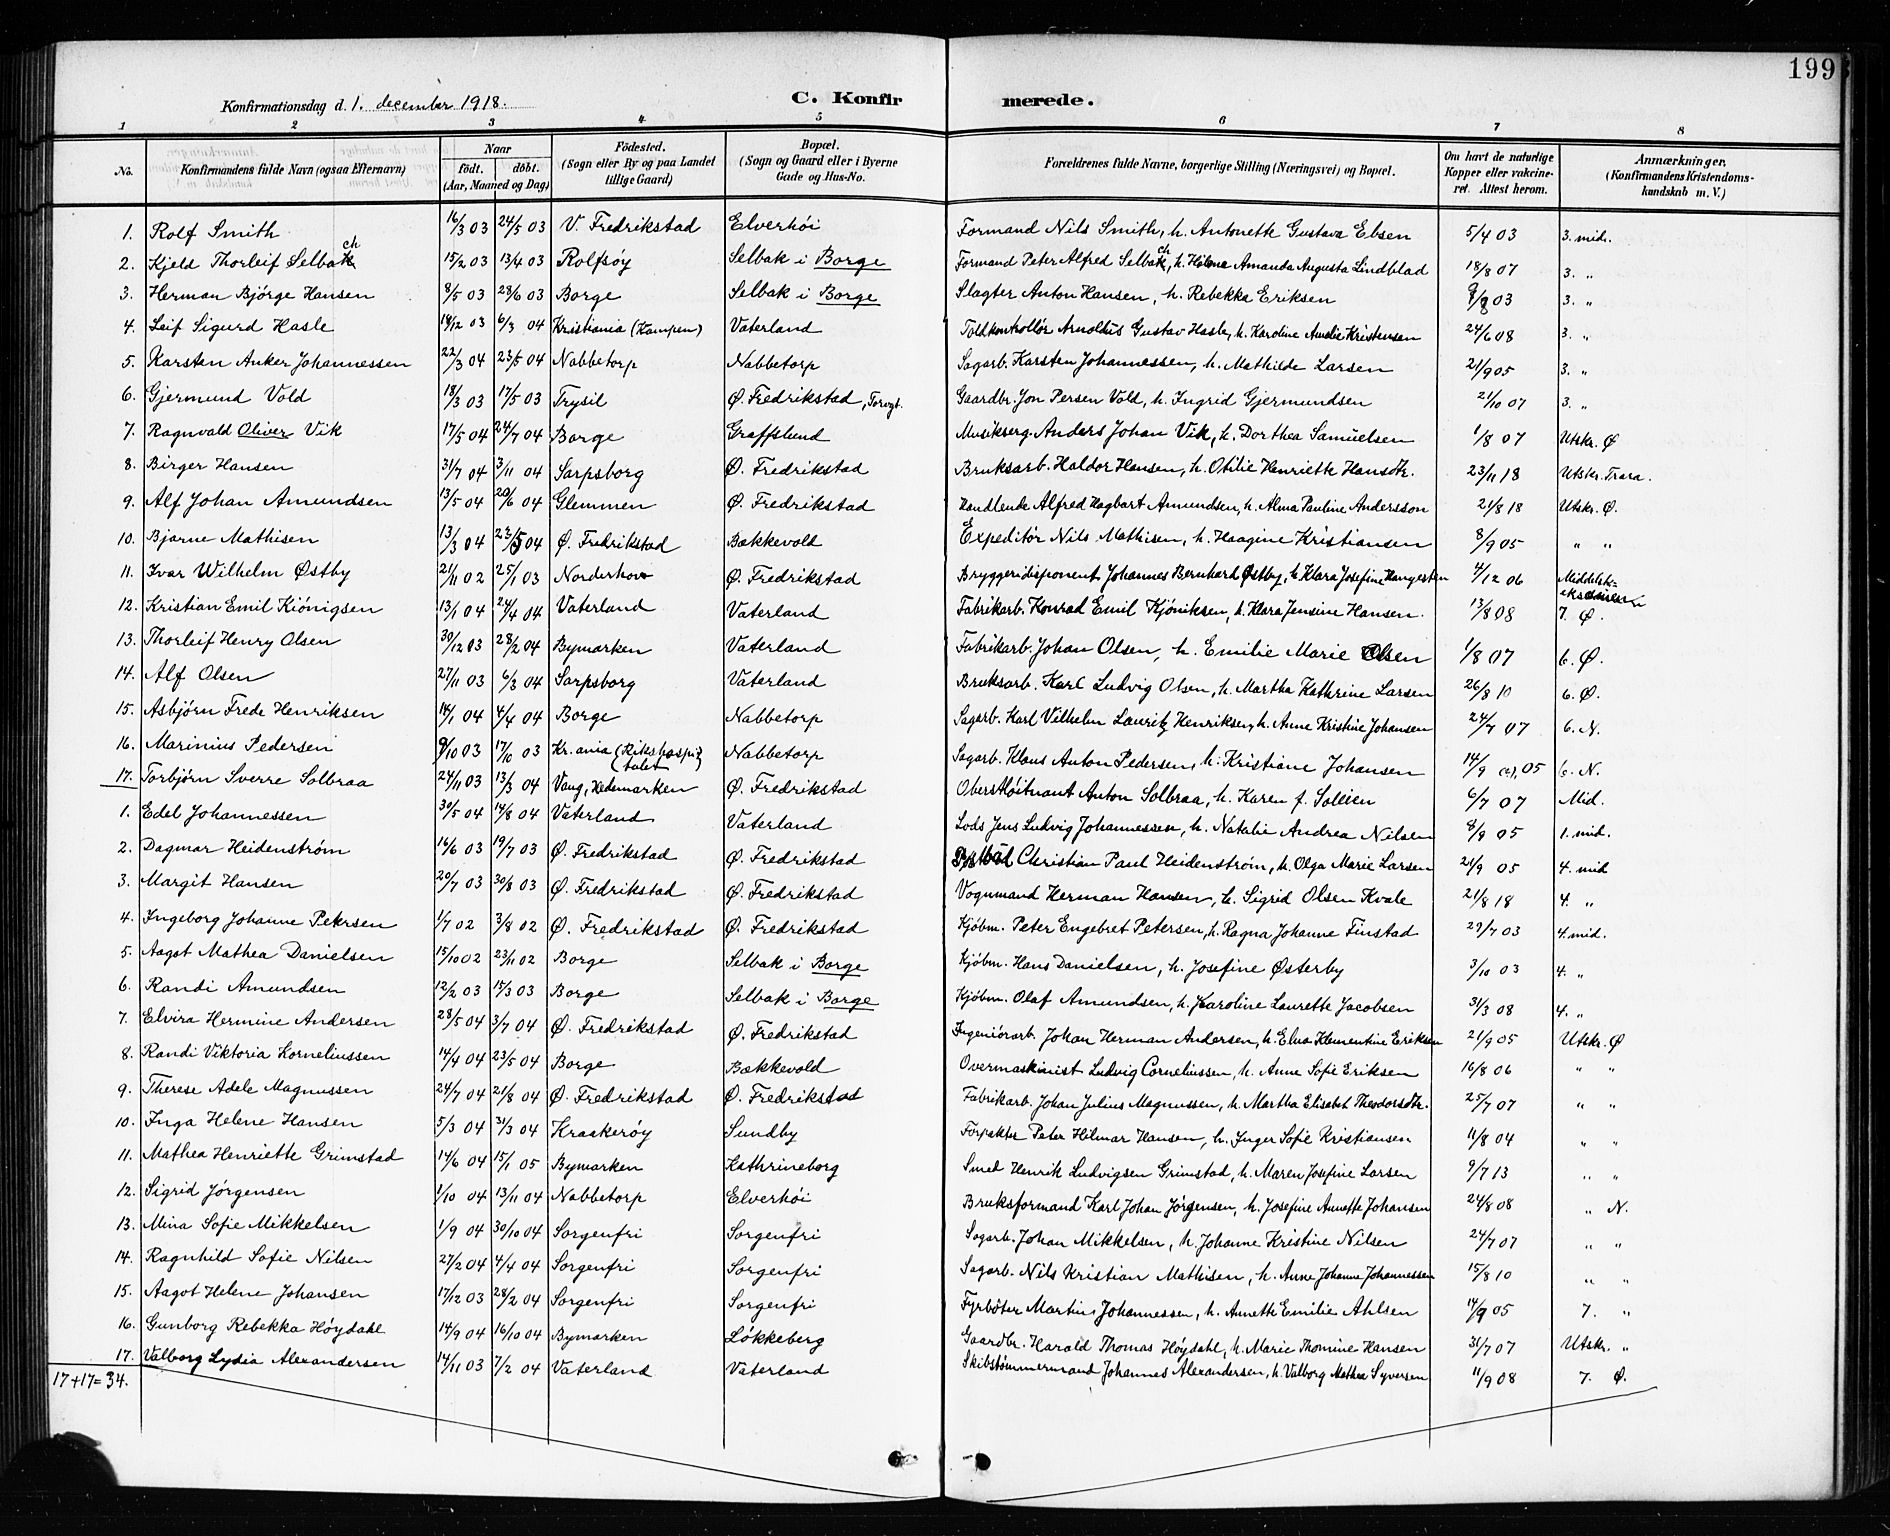 199
Konfirmationsdag d. 1. december 1918. C. Konfirmerede.
1 2 3 4 5 6 7 8
No. Konfirmandens fulde Navn (ogsaa Efternavn) Naar født. døbt. (Aar, Maaned og Dag) Fødested. (Sogn eller By og paa Landet tillige Gaard) Bopæl. (Sogn og Gaard eller i Byerne Gade og Hus-No. Forældrenes fulde Navne, borgerlige Stilling (Næringsvei) og Bopæl. Om havt de naturlige Kopper eller vakcineret. Attest herom. Anmærkninger, (Konfirmandens Kristendomskundskab m. V.)
1. Rolf Smith 16/3 03 24/5 03 V. Fredrikstad Elverhöi Formand Nils Smith, h. Antonette Gustava Ebsen 5/4 03 3. mid.
2. Kjeld Thorleif Selbach 15/2 03 13/4 03 Rolfsöy Selbak i Borge Formand Peter Alfred Selbach, h. Helena Amanda Augusta Lindblad 18/8 07 3. "
3. Herman Bjørge Hansen 8/5 03 28/6 03 Borge Selbak i Borge Slagter Anton Hansen, h. Rebekka Eriksen 03 3. "
4. Leif Sigurd Hasle 14/12 03 6/3 04 Kristiania (Kampen) Vaterland Toldkontrollör Arnoldus Gustav Hasle, h. Karoline Amalie Kristensen 24/6 08 3. "
5. Karsten Anker Johannessen 22/3 04 23/5 04 Nabbetorp Nabbetorp Sagarb. Karsten Johannessen, h. Mathilde Larsen 21/9 05 3. "
6. Gjermund Vold 18/3 03 17/5 03 Trysil Ø. Fredrikstad, Torvgt. Gaardbr. Jon Persen Vold, h. Ingrid Gjermundsen 21/10 07 3. "
7. Ragnvald Oliver Vik 17/5 04 24/7 04 Borge Graffslund Musikserg. Anders Johan Vik, h. Dorthea Samuelsen 1/8 07 Utskr. Ø
8. Birger Hansen 31/7 04 3/11 04 Sarpsborg Ø. Fredrikstad Bruksarb. Haldor Hansen, h. Otilie Henriette Hansdtr. 23/11 18 Utskr. Trara.
9. Alf Johan Amundsen 13/5 04 20/6 04 Glemmen Ø. Fredrikstad Handlende Alfred Hagbart Amundsen, h. Alma Pauline Andersson 21/8 18 Utskr. Ø.
10. Bjarne Mathisen 13/3 04 23/5 04 Ø. Fredrikstad Bækkevold Expeditör Nils Mathisen, h. Haagine Kristiansen 8/9 05 " "
11. Ivar Wilhelm Østby 21/11 02 25/1 03 Norderhov Ø. Fredrikstad Bryggeridisponent Johannes Bernhard Østby, h. Klara Josefine 4/12 06 Middelsk-eksamen
12. Kristian Emil Kiönigsen 13/1 04 24/4 04 Vaterland Vaterland Fabrikarb. Konrad Emil Kjöniksen, h. Klara Jensine Hansen. 13/8 08 7. Ø.
13. Thorleif Henry Olsen 30/12 03 28/2 04 Bymarken Vaterland Fabrikarb. Johan Olsen, h. Emilie Marie Olsen 1/8 07 6. Ø.
14. Alf Olsen 27/11 03 6/3 04 Sarpsborg Vaterland Bruksarb. Karl Ludvig Olsen, h. Martha Kathrine Larsen 26/8 10 6. Ø.
15. Asbjørn Frede Henriksen 14/1 04 4/4 04 Borge Nabbetorp Sagarb. Karl Vilhelm Lauritz Henriksen, h. Anne Kristine Johansen 24/7 07 6. N.
16. Marinius Pedersen 9/10 03 17/10 03 Kr.ania (Rikshospitalet) Nabbetorp Sagarb. Klaus Anton Pedersen, h. Kristiane Johansen 14/9 05 6. N.
17. Torbjørn Sverre Solbraa 24/11 03 13/3 04 Vang, Hedemarken Ø. Fredrikstad Oberstlöitnant Anton Solbraa, h. Karen f. Solleien 6/7 07 Mid.
1. Edel Johannessen 30/5 04 14/8 04 Vaterland Vaterland Lods Jens Ludvig Johannessen, h. Natalie Andrea Nilsen 8/9 05 1. mid.
2. Dagmar Heidenström 16/6 03 19/7 03 Ø. Fredrikstad Ø. Fredrikstad Christian Paul Heidenström, h. Olga Marie Larsen 24/9 05 4. mid
3. Margit Hansen 20/7 03 30/8 03 Ø. Fredrikstad Ø. Fredrikstad Vognmand Herman Hansen, h. Sigrid Olsen Kvale 21/8 18 4. "
4. Ingeborg Johanne Petersen 1/7 02 3/8 02 Ø. Fredrikstad Ø. Fredrikstad Kjöbm. Peter Engebret Petersen, h. Ragna Johanne Finstad 29/7 03 4. mid.
5. Aagot Mathea Danielsen 15/10 02 23/11 02 Borge Selbak i Borge Kjöbm. Hans Danielsen, h. Josefine Østerby 3/10 03 4. "
6. Randi Amundsen 12/2 03 15/3 03 Borge Selbak i Borge Kjöbm. Olaf Amundsen, h. Karoline Laurette Jacobsen 31/3 08 4. "
7. Elvira Hermine Andersen 28/5 04 3/7 04 Ø. Fredrikstad Ø. Fredrikstad Ingeniörarb. Johan Herman Andersen, h. Elna Klementine Eriksen 21/9 05 Utskr. Ø
8. Randi Viktoria Korneliussen 14/4 04 23/5 04 Borge Bækkevold Overmaskinist Ludvig Corneliussen, h. Anne Sofie Eriksen 16/8 06 " "
9. Therese Adele Magnussen 24/7 04 21/8 04 Ø. Fredrikstad Ø. Fredrikstad Fabrikarb. Johan Julius Magnussen, h. Martha Elisabet Theodorsdtr. 25/7 07 " "
10. Inga Helene Hansen 5/3 04 31/3 04 Kraakeröy Sundby Forpakter Peter Hilmar Hansen, h. Inger Sofie Kristiansen 11/8 04 " "
11. Mathea Henriette Grimstad 14/6 04 15/1 05 Bymarken Kathrineborg Smed Henrik Ludvigsen Grimstad, h. Maren Josefine Larsen 9/7 13 " "
12. Sigrid Jörgensen 1/10 04 13/11 04 Nabbetorp Elverhöi Bruksformand Karl Johan Jörgensen, h. Josefine Annette Johansen 24/8 08 " N.
13. Mina Sofie Mikkelsen 1/9 04 30/10 04 Sorgenfri Sorgenfri Sagarb. Johan Mikkelsen, h. Johanne Kristine Nilsen 24/7 07 " "
14. Ragnhild Sofie Nilsen 27/2 04 4/4 04 Sorgenfri Sorgenfri Sagarb. Nils Kristian Mathisen, h. Anne Johanne Johannessen 15/8 10 " "
15. Aagot Helene Johansen 17/12 03 28/2 04 Sorgenfri Sorgenfri Fyrböter Martin Johannessen, h. Annette Emilie Ahlsen 14/9 05 7. "
16. Gunborg Rebekka Höydahl 14/9 04 16/10 04 Bymarken Lökkeberg Gaardbr. Harald Thomas Höydahl, h. Marie Thomine Hansen 31/7 07 Utskr. "
17. Valborg Lydia Alexandersen 14/11 03 7/2 04 Vaterland Vaterland Skibstömmermand Johannes Alexandersen, h. Valborg Mathea Syversen 11/9 08 7. Ø.
17+17=34.